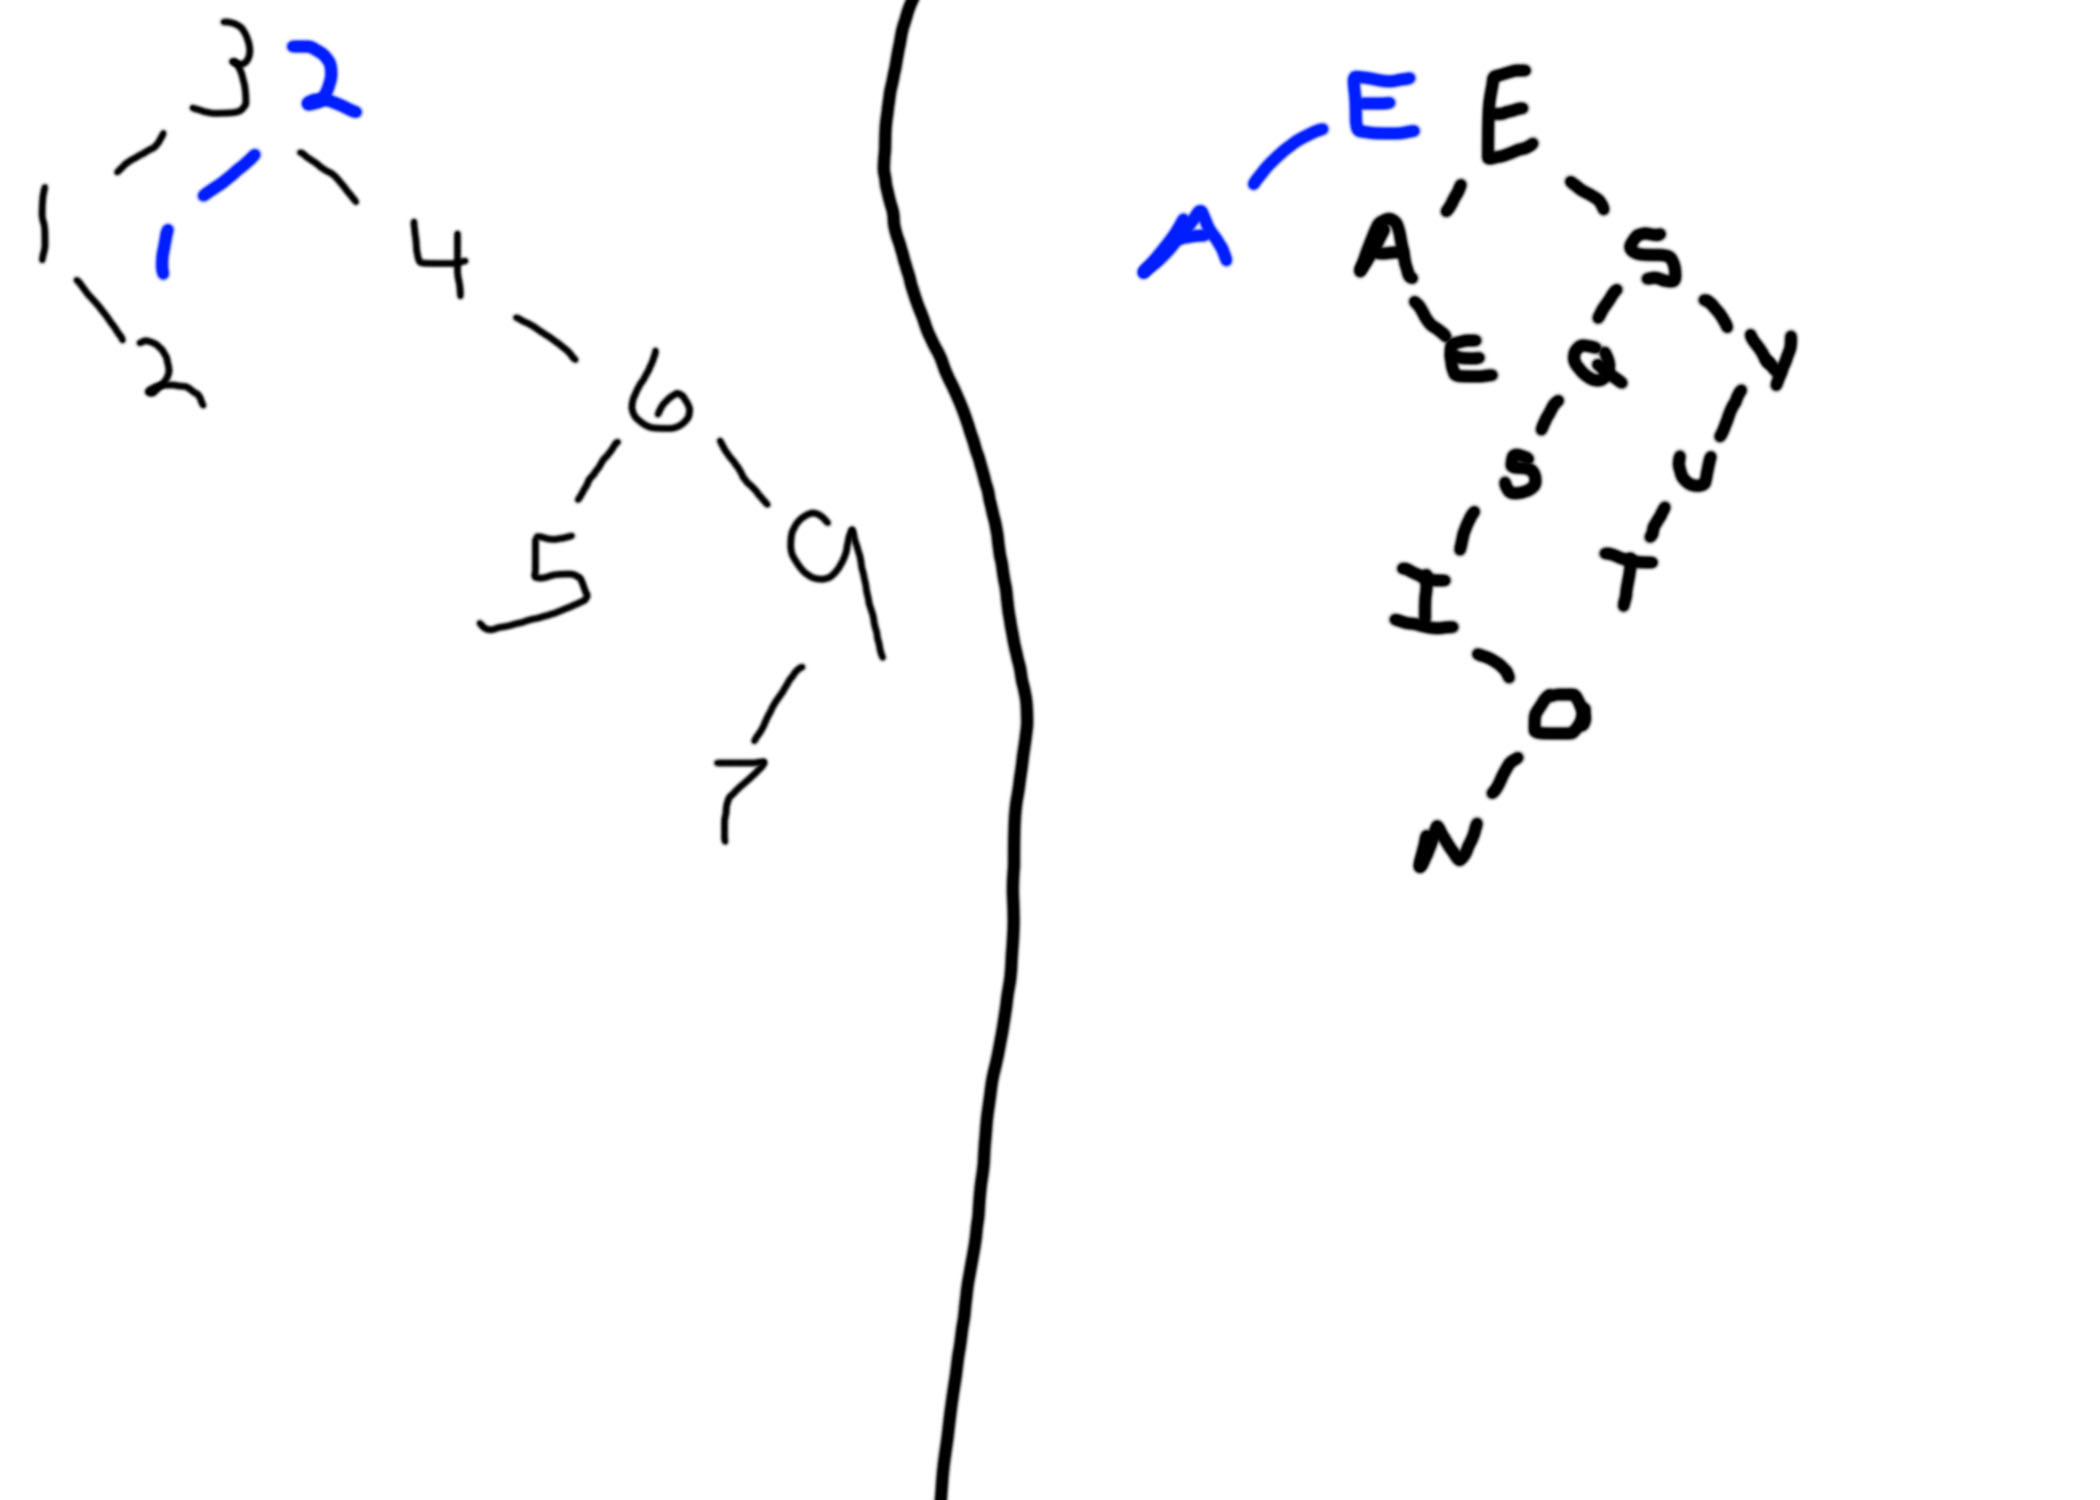 3 2
1 1 4
2
6
5 9
7
E E
A A S
E Q Y
S U
I T
O
N